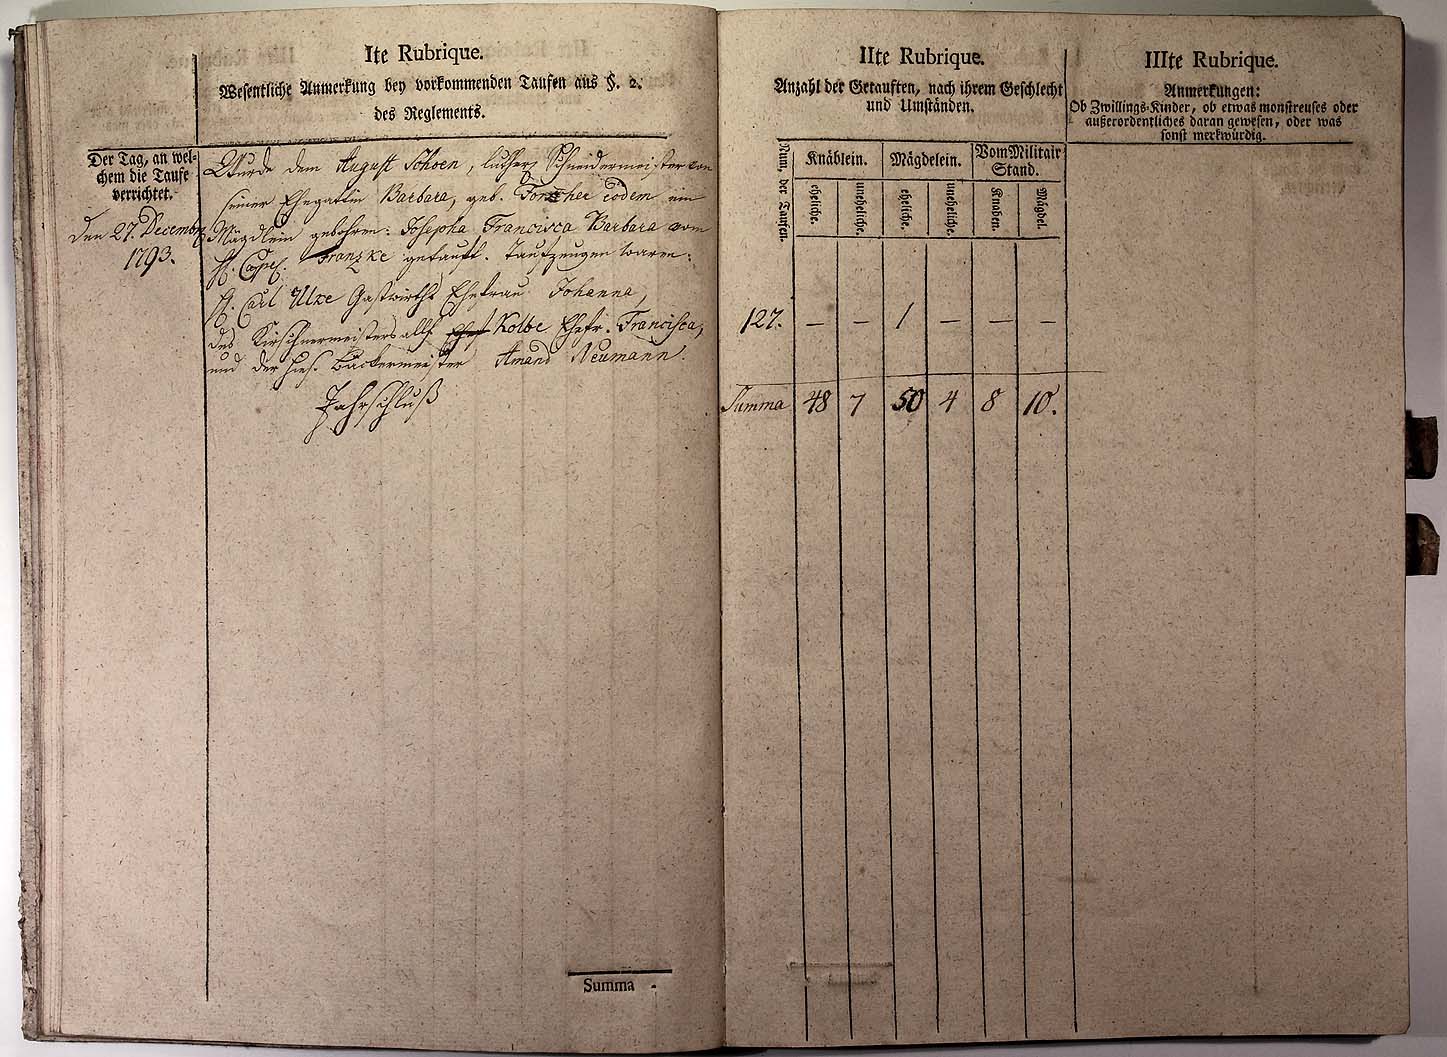 Ite Rubrique.
Wesentliche Anmerkung bey vorkommenden Taufen aus §. 2.
des Reglements.
Der Tag, an wel-
chem die Taufe
verrichtet.
Den 27. Decembr
1793.
Wurde dem August Schoen, luther. Schneidermeister von
seiner Ehegattin Barbara, geb. eodem ein
Mägdlein gebohren: Josepha Francisca Barbara vom
H. Capl. Franzke getauft. Taufzeugen waren:
H. Carl Ulze Gastwirths Ehefrau Johanna,
des Kirschnermeisters allh. Kolbe Ehefr. Francisca,
und der hies. Bäckermeister Amand Neumann.
Jahrschluß
Summa
IIte Rubrique.
Anzahl der Getauften, nach ihrem Geschlecht
und Umständen.
Num. der Taufen.
Knäblein. Mägdelein. Vom Militair
Stand.
eheliche. uneheliche. eheliche. uneheliche. Knaben. Mägdel.
127. — — 1 — — —
Summa 48 7 50 4 8 10.
IIIte Rubrique.
Anmerkungen:
Ob Zwillings-Kinder, ob etwas monstreuses oder
außerordentliches daran gewesen, oder was
sonst merkwürdig.